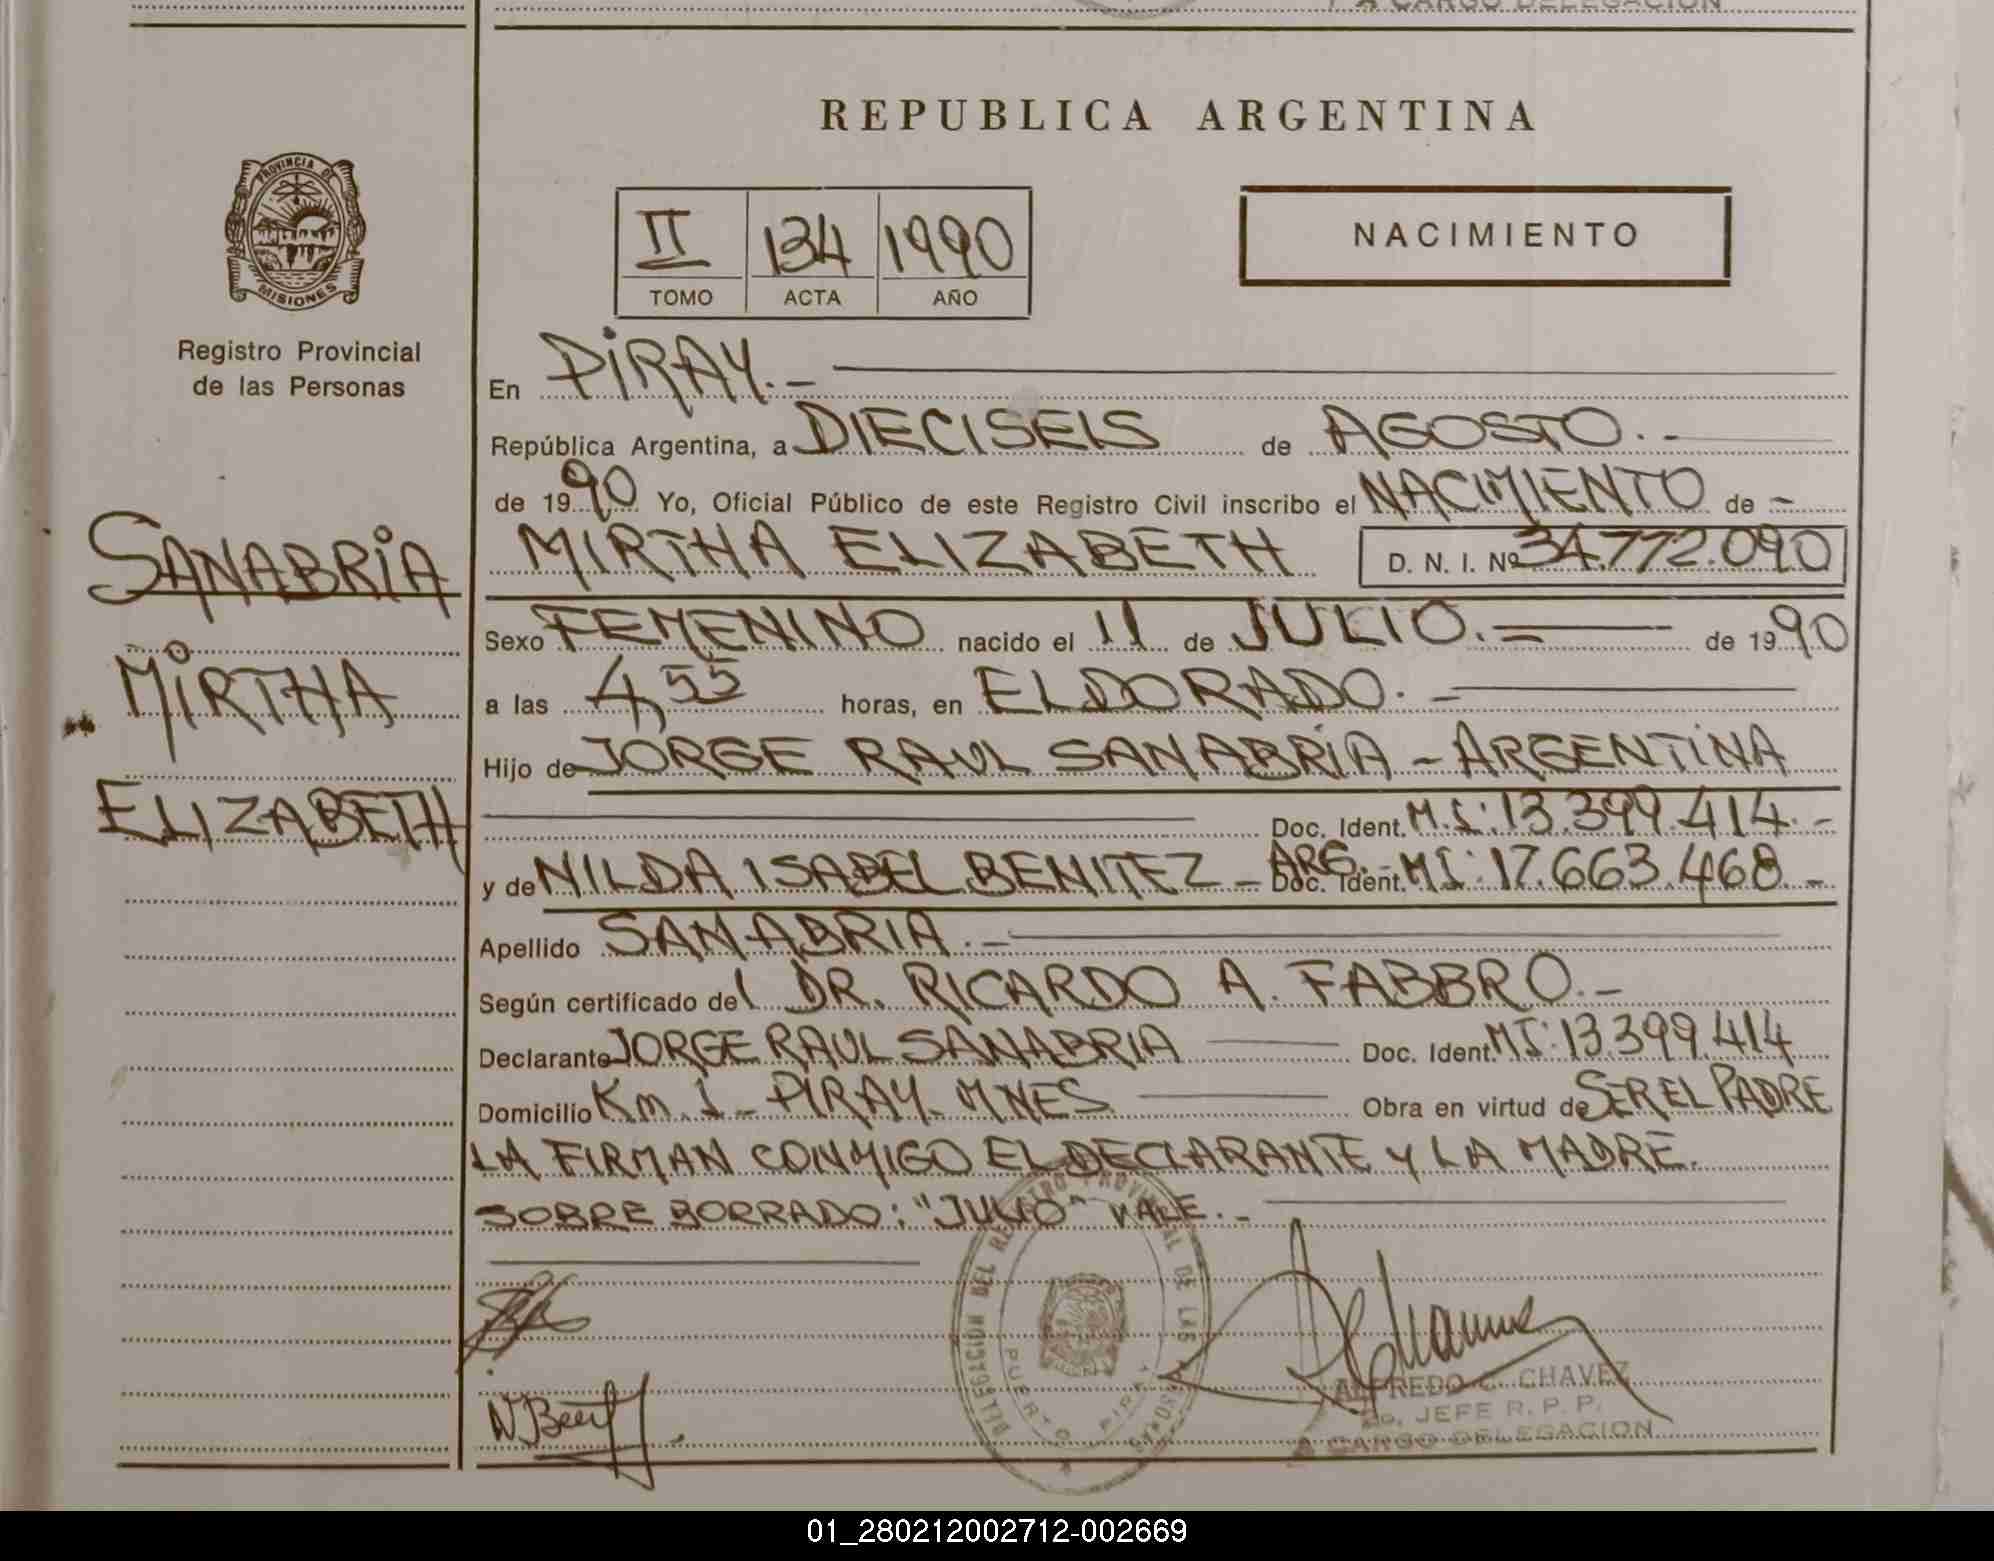 A CARGO DELEGACION
REPUBLICA ARGENTINA
PROVINCIA DE
MISIONES
II 134 1990
TOMO ACTA AÑO
NACIMIENTO
Registro Provincial
de las Personas
SANABRIA
MIRTHA
ELIZABETH
En PIRAY.-
República Argentina, a DIECISEIS de AGOSTO.-
de 1990 Yo, Oficial Público de este Registro Civil inscribo el NACIMIENTO de -
MIRTHA ELIZABETH D. N. I. Nº 34.772.090
Sexo FEMENINO nacido el 11 de JULIO.= de 1990
a las 4,55 horas, en ELDORADO.-
Hijo de JORGE RAUL SANABRIA - ARGENTINA
Doc. Ident. M.I: 13.399.414.-
y de NILDA ISABEL BENITEZ - ARG.- Doc. Ident. MI: 17.663.468.-
Apellido SANABRIA.-
Según certificado del DR. RICARDO A. FABBRO.-
Declarante JORGE RAUL SANABRIA Doc. Ident. MI: 13.399.414
Domicilio Km. 1 - PIRAY - MNES Obra en virtud de SER EL PADRE
LA FIRMAN CONMIGO EL DECLARANTE Y LA MADRE.
SOBRE BORRADO: "JULIO" VALE.-
DELEGACIÓN DEL REGISTRO PROVINCIAL DE LAS PERSONAS
PUERTO PIRAY
ALFREDO C. CHAVEZ
JEFE R. P. P.
A CARGO DELEGACION
01_280212002712-002669